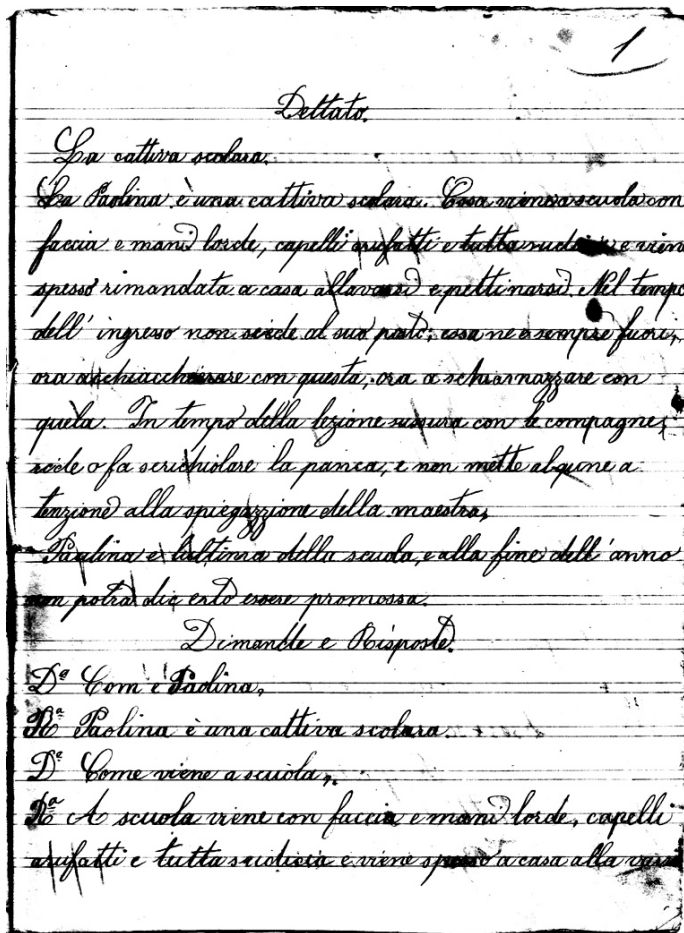 1
Dettato.
La cattiva scolara.
La Paolina è una cattiva scolara. Essa viene a scuola con
faccia e mani lorde, capelli arufatti e tutta e viene
spesso rimandata a casa allavarsi e pettinarsi. Nel tempo
dell' ingresso non siede al suo posto; essa ne è sempre fuori,
ora a chiacchierare con questa, ora a schiamazzare con
quela. In tempo della lezione sussura con le compagne,
ride o fa scrichiolare la panca, e non mette alqune a
tenzione alla spiegazzione della maestra,
Paolina è l'ultima della scuola, e alla fine dell' anno
non potrà di certo essere promossa.
Dimande e Risposte.
Dª Com' è Paolina,
Rª Paolina è una cattiva scolara
Dª Come viene a scuola,
Rª A scuola viene con faccia e mani lorde, capelli
arufatti e tutta sudicia e viene a casa alla